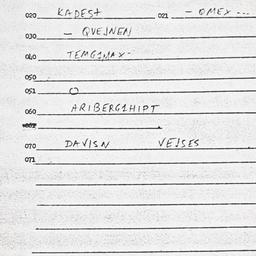 020 KADES+ 021 - OMEX ---
030 - QVEJNEN
040 TEMGIMAX-
050
051 O
060 ARIBERG1HIPT
070 DAVISN VEJSES
071